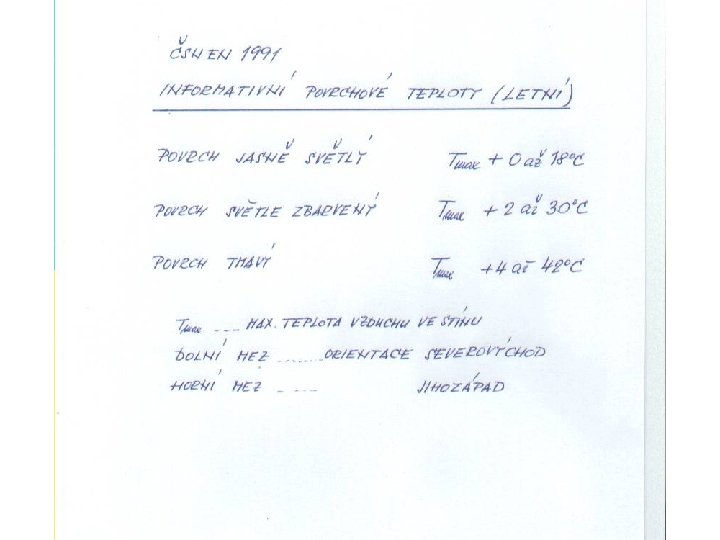 ČSN EN 1991
INFORMATIVNÍ POVRCHOVÉ TEPLOTY (LETNÍ)
POVRCH JASNĚ SVĚTLÝ Tmax + 0 až 18°C
POVRCH SVĚTLE ZBARVENÝ Tmax + 2 až 30°C
POVRCH TMAVÝ Tmax + 4 až 42°C
Tmax .... MAX. TEPLOTA VZDUCHU VE STÍNU
DOLNÍ MEZ ........ ORIENTACE SEVEROVÝCHOD
HORNÍ MEZ ...... JIHOZÁPAD